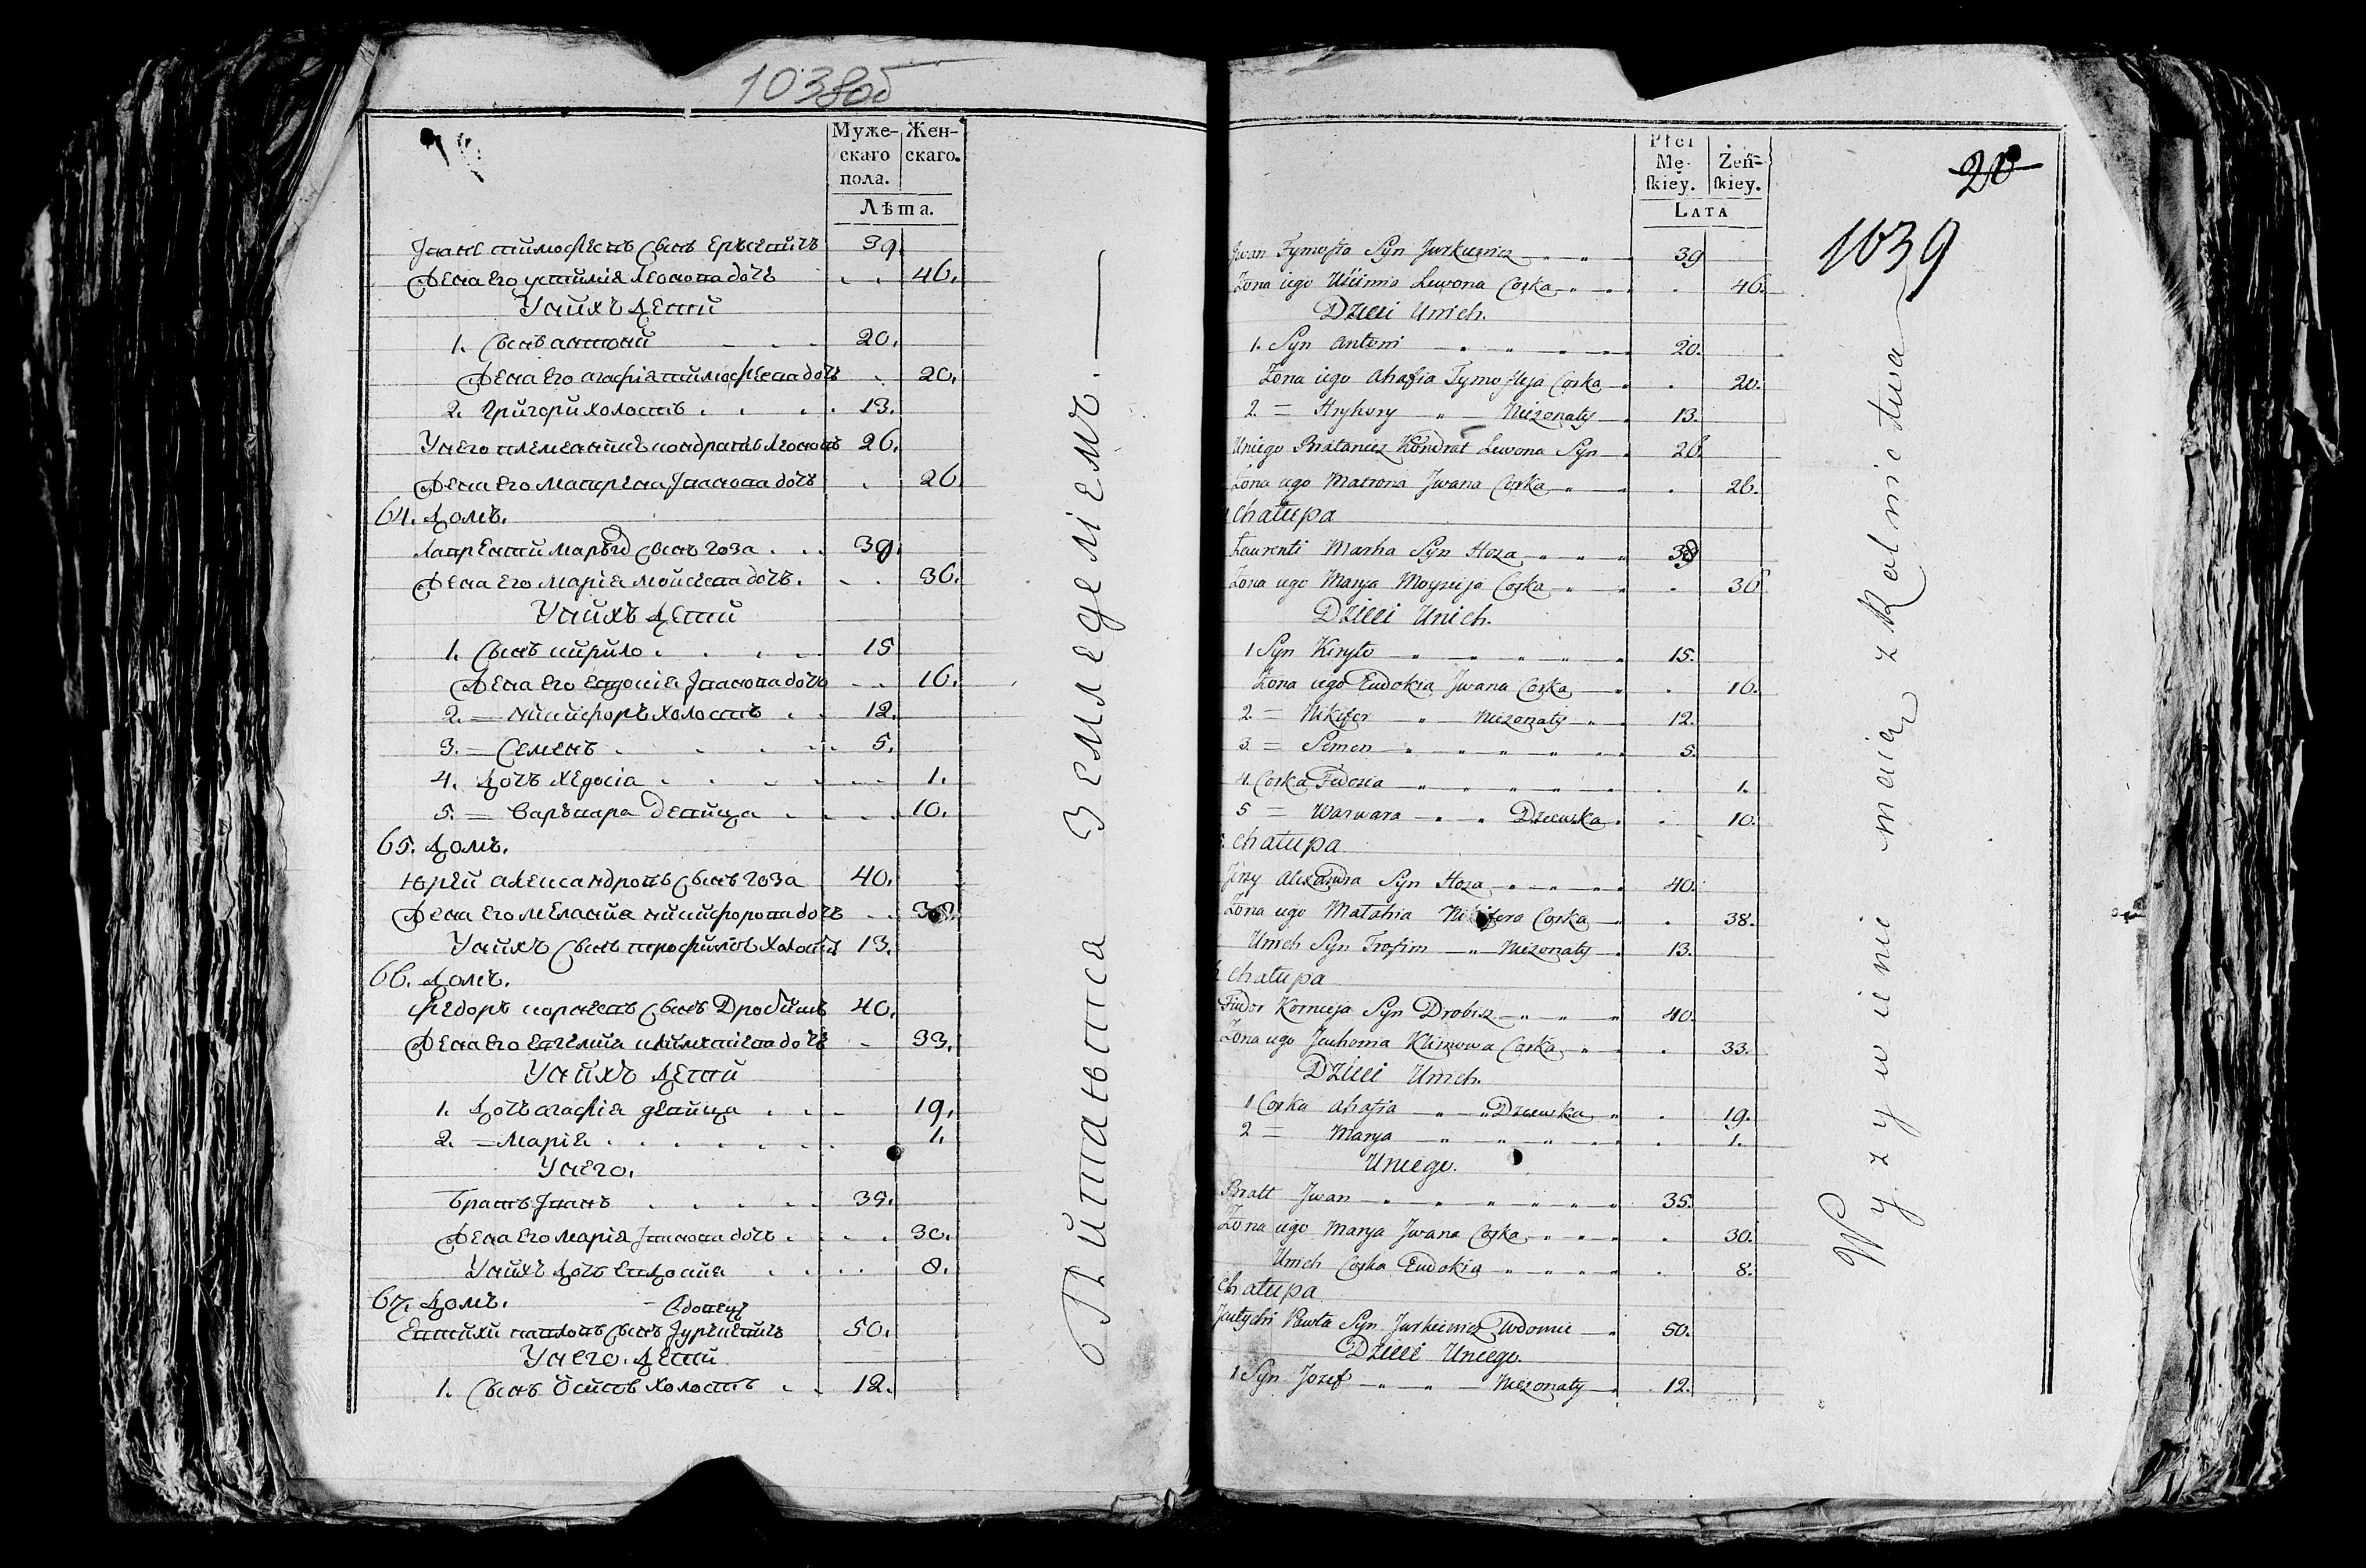 1038об
Муже- Жен-
скаго скаго.
пола.
Лѣта.
Іванъ тимофеевъ сынъ 39.
Жена его устимія леонова дочь 46.
У нихъ дети
1. Сынъ антони 20.
Жена его агафія тимофеева дочь 20.
2. Григори холостъ 13.
У него племенникъ кондратъ леоновъ 26.
Жена его матрена Іванова дочь 26
64. домъ.
лаврентий сынъ гоза 39.
Жена его марія мойсеева дочь. 36.
У нихъ дети
1. Сынъ кирило 15
Жена его евдокія Іванова дочь 16.
2. = никифоръ холостъ 12.
3. = Семенъ 5.
4. дочь хедосіа 1.
5. = варъвара девица 10.
65. домъ.
юрей александровъ сынъ гоза 40.
Жена его меланиа никифорова дочь 38.
У нихъ сынъ трофимъ холостъ 13.
66. домъ.
федоръ корнеевъ сынъ Дробишъ 40.
Жена его евгениа дочь 33.
У нихъ дети
1. дочь агафіа девица 19.
2. = Маріа 1.
У него.
братъ Іванъ 35.
Жена его маріа Іванова дочь 30.
У нихъ дочь евдокиа 8.
67. домъ. вдовецъ
Евтихи павловъ сынъ 50.
У него дети
1. Сынъ Осипъ холостъ 12.
Питаюьтса Земледеліемъ.
Płci
Mę- Żeń-
skiey. skiey.
LATA
20
1039
Jwan Tymofta Syn Jurkiewicz 39
Zona iego Uścimia Lewona Corka 46.
Dzieci Unich.
1. Syn Antoni 20.
Zona iego Ahafia Tymofieja Corka 20.
2. = Hryhory Niezonaty 13.
Uniego Bratanicz Kondrat Lewona Syn 26.
Zona iego Matrona Jwana Corka 26.
chałupa
Laurenti Marka Syn Hoza 39
Zona iego Marya Moyzieja Corka 36
Dzieci Unich.
1 Syn Kiryło 15.
Zona iego Eudokia Jwana Corka 16.
2. = Nikifor Niezonaty 12.
3. = Semen 5.
4. Corka Fedozia 1.
5 = Warwara Dziewka 10.
chałupa
Jerzy Alexandra Syn Hoza 40.
Zona iego Małahia Nikifora Corka 38.
Unich Syn Trofim Niezonaty 13.
chałupa
Fiudor Kornieja Syn Drobisz 40.
Zona iego Jeuhenia Klimowa Corka 33.
Dzieci Unich.
1 Corka Ahafia Dziewka 19.
2 = Marya 1.
Uniego.
Bratt Jwan 35.
Zona iego Marya Jwana Corka 30.
Unich Corka Eudokia 8.
chałupa
Jeutychi Pawła Syn Jurkiewicz Wdowiec 50.
Dzieci Uniego.
1 Syn Jozef Niezonaty 12.
Wyzywienie maią z Rolnictwa